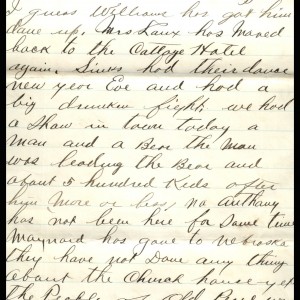 I guess Williams has got him
done up. Mrs Laux has moved
back to the Cottage Hotel
again. Sinks had their dance
new year Eve and had a
big drunken fight we had
a Shaw in town today a
man and a Bear the Man
was leading the Bear and
about 5 hundred Kids after
him more or less, no anthany
has not been here for Some time
Maynard has gone to Nebraska
they have not done any thing
about the Church house yet
the People of Old